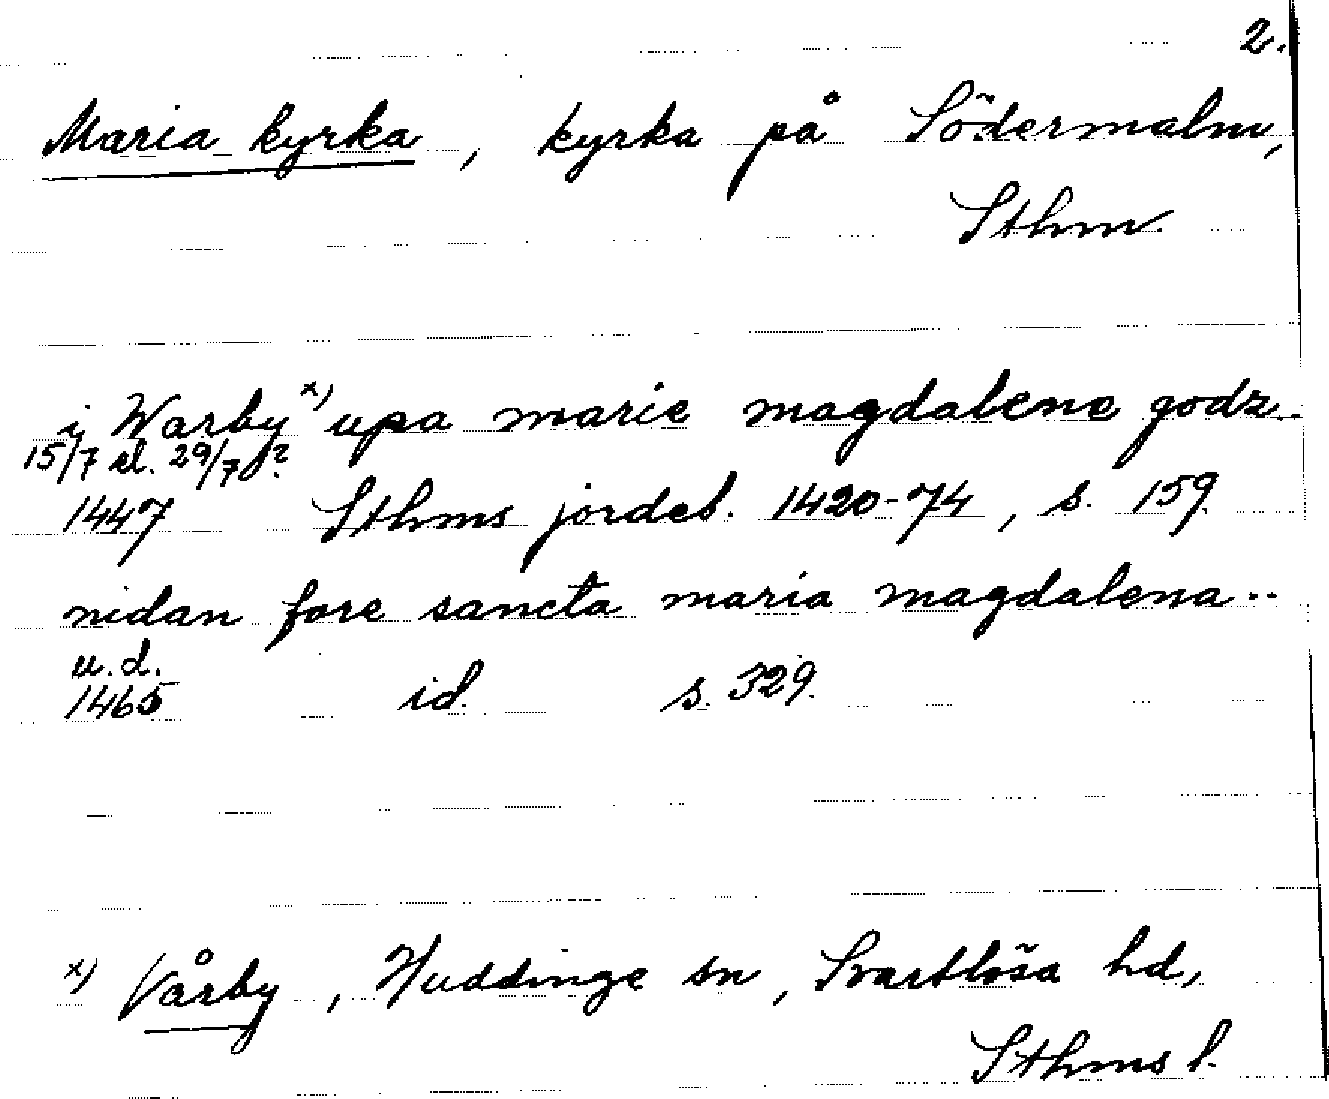 2.
Maria kyrka, kyrka på Södermalm,
Sthm.
i Warby x) upa marie magdalene godz.
15/7 el. 29/7 ?
1447 Sthms jordeb. 1420-74, s. 159.
nidan fore sancta maria magdalena..
u.d.
1465 id. s. 329.
x) Vårby, Huddinge sn, Svartlösa hd,
Sthms l.